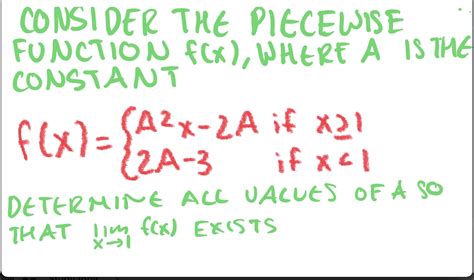 CONSIDER THE PIECEWISE
FUNCTION f(x), WHERE A IS THE
CONSTANT
f(x) = { A²x - 2A if x ≥ 1
2A - 3 if x < 1
DETERMINE ALL VALUES OF A SO
THAT lim x→1 f(x) EXISTS